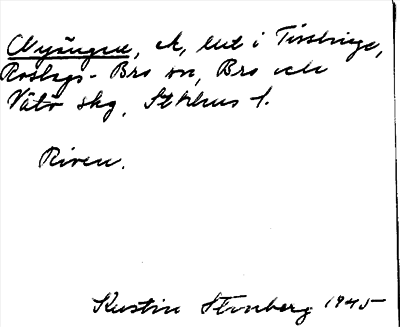 Nyängen, A, ent i Tissbinge,
Roslags-Bro sn, Bro och
Vätö skg, Sthlms l.
Riven.
Kerstin Stenberg 1945